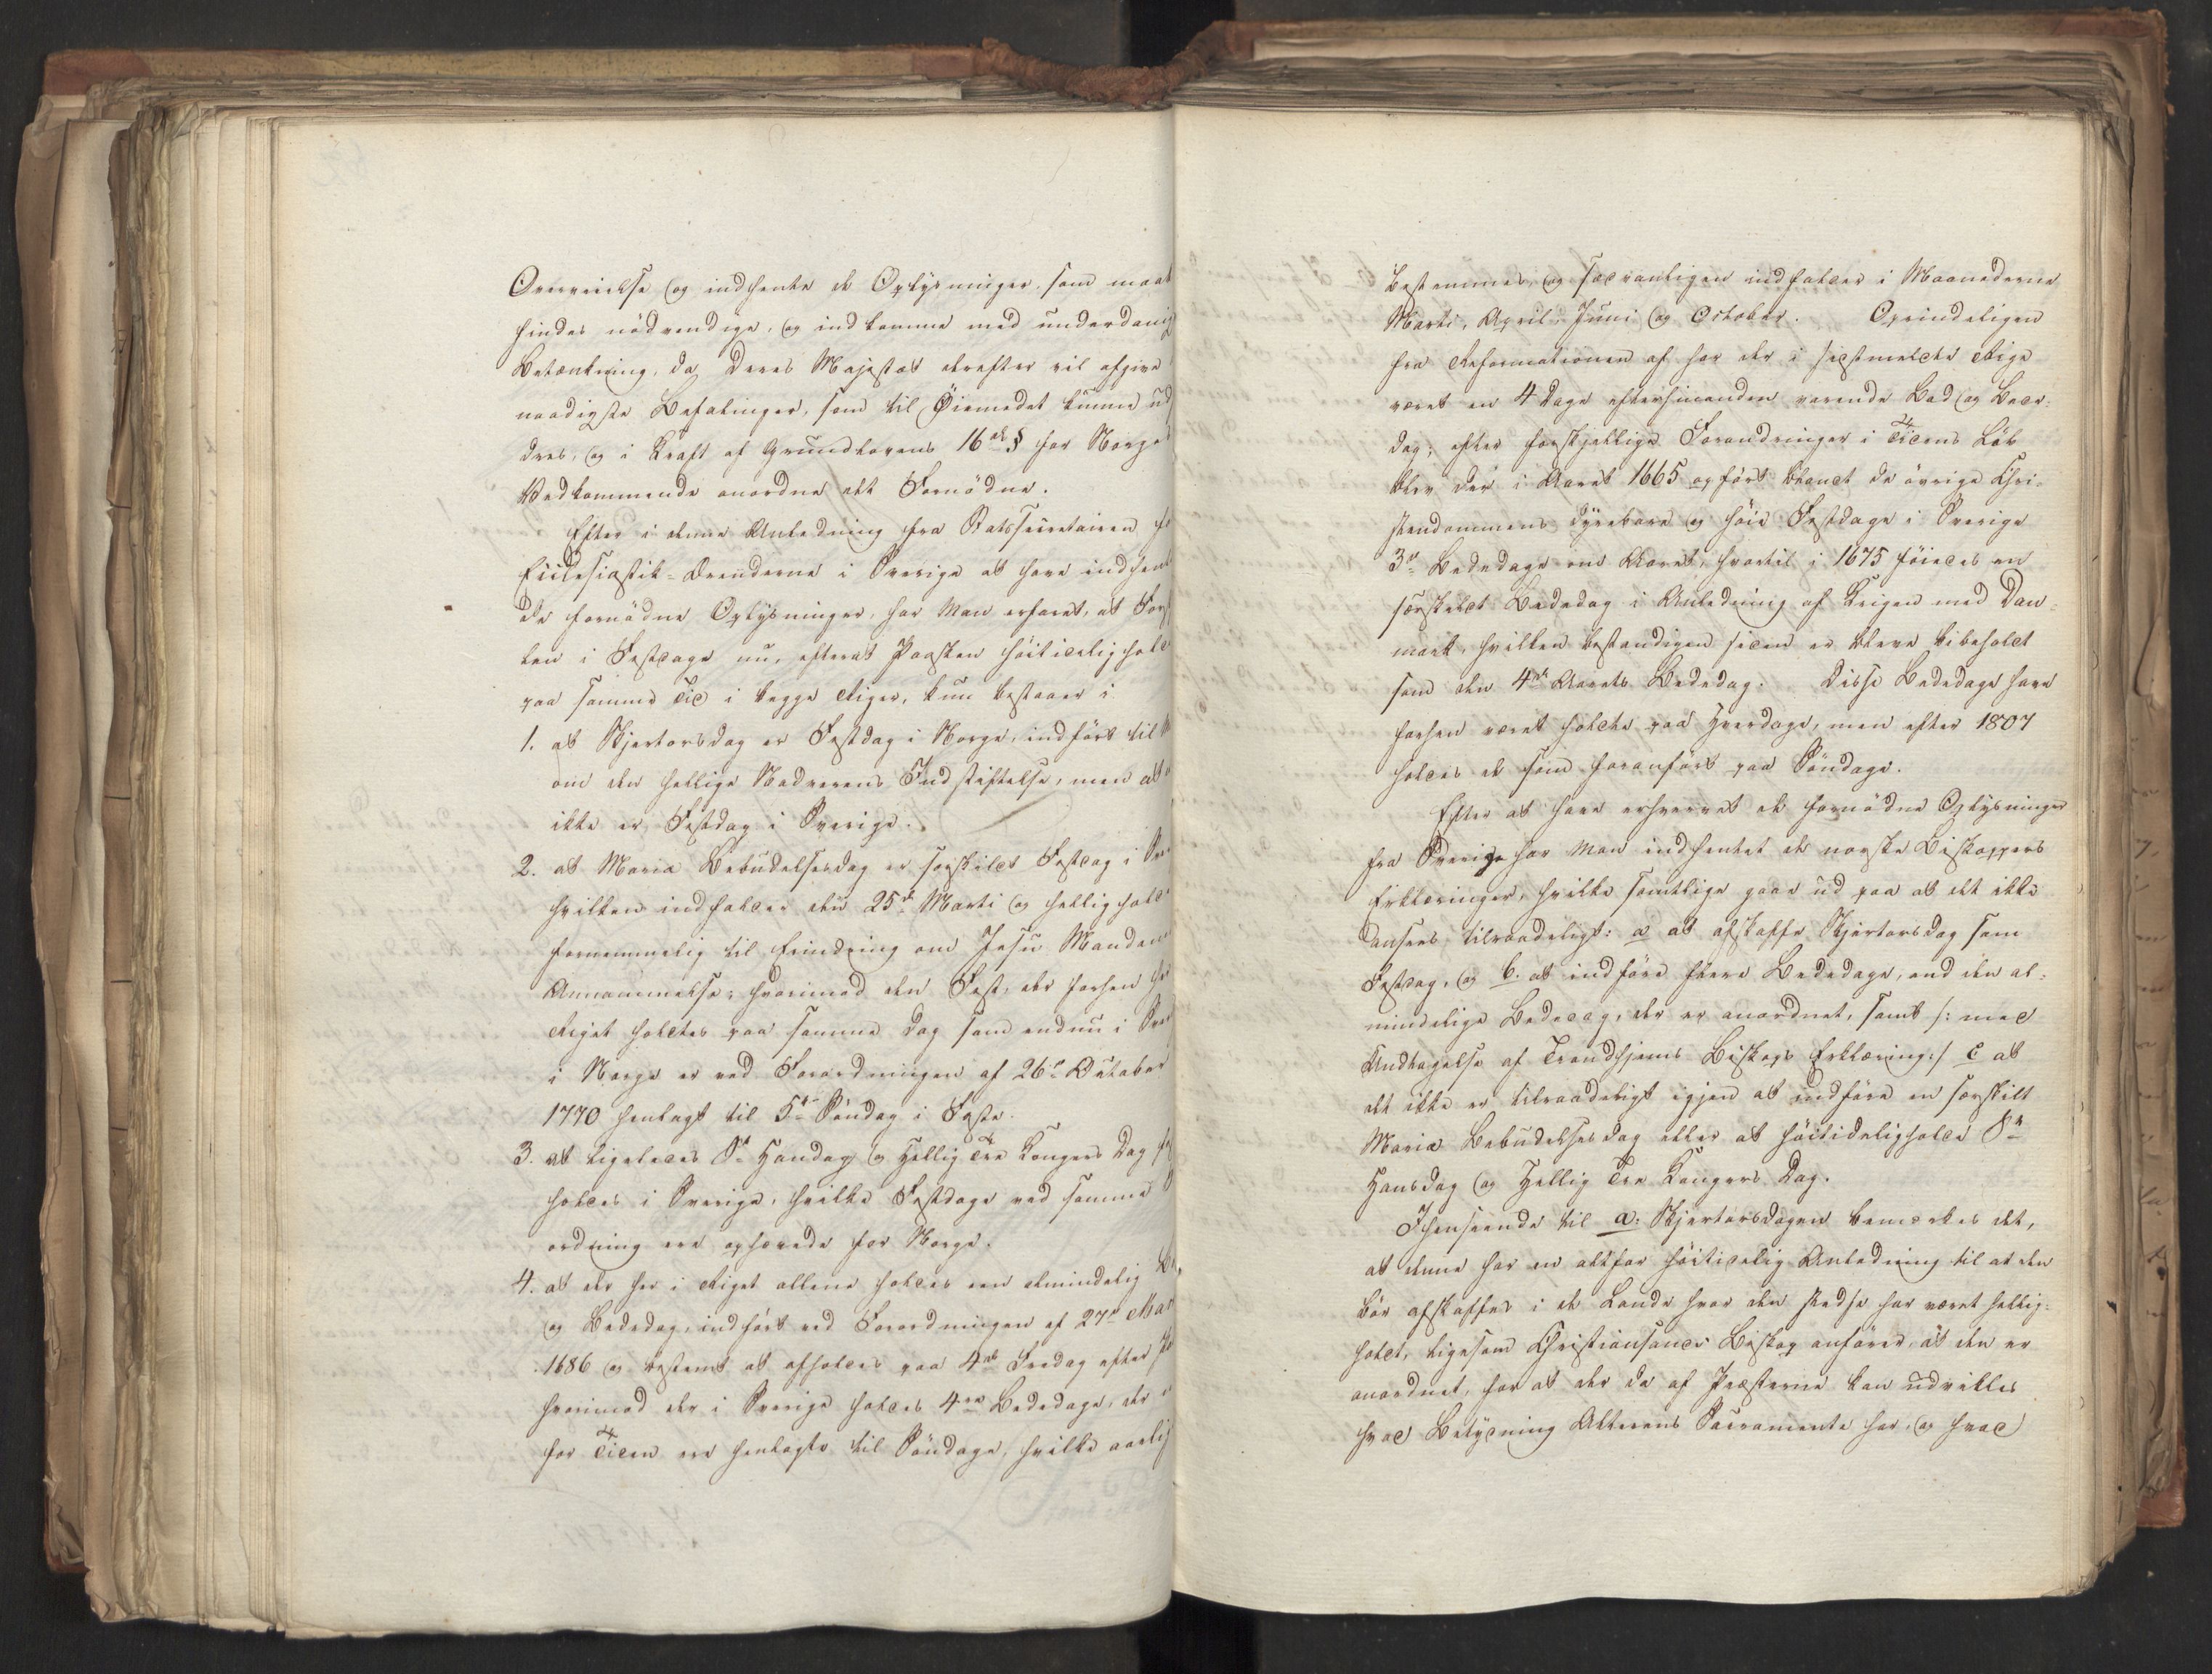 Overveielse og indhente de Oplysninger, som maat
findes nödvendige, og indkomme med underdanig
Betænkning, da Deres Majestæt derefter vil afgive
naadigste Befalinger, som til Öiemedet kunne ud
dres, og i Kraft af Grundlovens 16de § for Norges
Vedkommende anordne alt Fornödne.
Efter i denne Anledning fra Statssecretairen fo
Ecclesiastik-Ærenderne i Sverige at have indhent
de fornödne Oplysninger, har Man erfaret, at Forsk
len i Festdage nu, efterat Paasken höitidelighold
paa samme Tid i begge Riger, kun bestaaer i
1. at Skjertorsdag er Festdag i Norge, indfört til
om den hellige Nadverens Indstiftelse, men at
ikke er Festdag i Sverige.
2. at Maria Bebudelsesdag er særskilt Festdag i Sve
hvilken indfalder den 25de Marti og hellighold
fornemmelig til Erindring om Jesu Manddom
Annammelse; hvorimod den Fest, der forhen her
Riget holdtes paa samme Dag som endnu i Sver
i Norge er ved Forordningen af 26de October
1770 henlagt til 5te Söndag i Faste.
3. at ligeledes St Hansdag og Hellig Tre Kongers Dag
holdes i Sverige, hvilke Festdage ved samme
ordning ere ophævede for Norge.
4. at der her i Riget allene holdes een almindelig
og Bededag, indfört ved Forordningen af 27de Mar
1686 og bestemt at afholdes paa 4de Fredag efter
hvorimod der i Sverige holdes 4re Bededage, der
for Tiden ere henlagte til Söndage, hvilke aarlig
bestemmes, og sædvanligen indfalder i Maanederne
Marti, April, Juni og October. Oprindeligen
fra Reformationen af har der i sidstmeldte Rige
været en 4 Dage efterhinanden varende Bed og Boer-
dag; efter forskjellige Forandringer i Tidens Löb
blev der i Aaret 1665 opfört blandt de övrige Chri-
stendommens dyrebare og höie Festdage i Sverige
3de Bededage om Aaret, hvortil i 1675 föiedes en
særskilt Bededag i Anledning af Krigen med Dan-
mark, hvilken bestandigen siden er bleven bibeholdt
som den 4de Aarets Bededag. Disse Bededage have
forhen været holdte paa Hverdage, men efter 1807
holdes de som foranfört paa Söndage.
Efter at have erhvervet de fornödne Oplysninger
fra Sverige har Man indhentet de norske Biskoppers
Erklæringer, hvilke samtlige gaae ud paa at det ikke
ansees tilraadeligt: a at afskaffe Skjertorsdag som
Festdag, og b. at indföre flere Bededage, end den al-
mindelige Bededag, der er anordnet, samt /: med
Undtagelse af Trondhjems Biskops Erklæring:/ c at
det ikke er tilraadeligt igjen at indföre en særskilt
Maria Bebudelsesdag eller at höitideligholde St
Hansdag og Hellig Tre Kongers Dag.
I Henseende til a: Skjertorsdagen bemærkes det,
at denne har en altfor höitidelig Anledning til at den
bör afskaffes i de Lande hvor den stedse har været hellig-
holdt, ligesom Christiansands Biskop anförer, at den er
anordnet, for at der da af Præsterne kan udvikles
hvad Betydning Alterens Sacramente har, og hvad